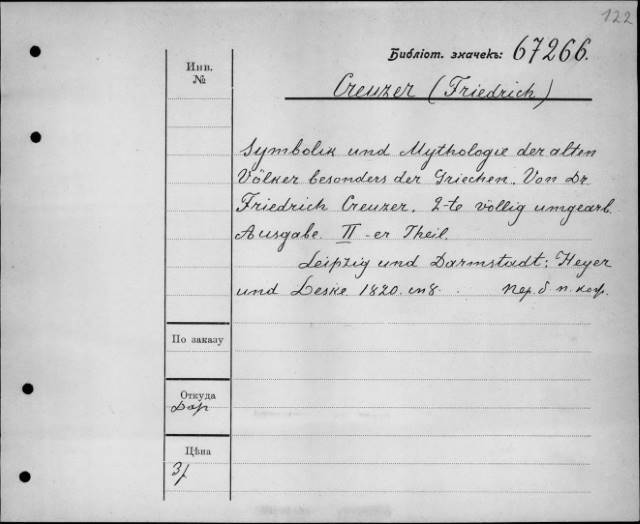 122
Библіот. значекъ: 67266.
Инв.
№
Creuzer (Friedrich)
Symbolik und Mythologie der alten
Völker besonders der Griechen. Von Dr
Friedrich Creuzer. 2-te völlig umgearb.
Ausgabe. II-er Theil.
Leipzig und Darmstadt: Heyer
und Leske 1820. in 8. Пер. б. п. кож.
По заказу
Откуда
Дар
Цѣна
3р